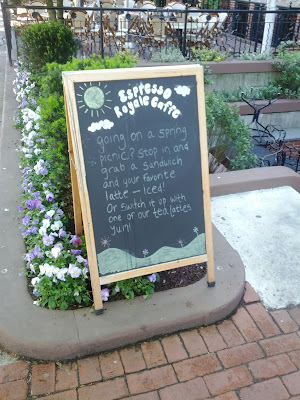 Espresso
Royale Caffe
going on a spring
picnic? Stop in and
grab a sandwich
and your favorite
latte – iced!
Or switch it up with
one of our tea lattes
Yum!